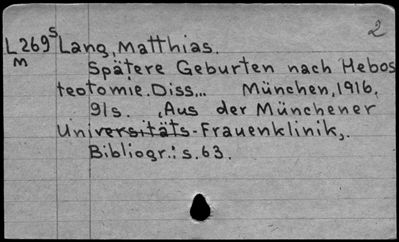 2
L269s Lang, Matthias.
m
Spätere Geburten nach Hebos
teotomie. Diss... München, 1916.
91s. ,Aus der Münchener
Universitäts-Frauenklinik,.
Bibliogr.: s. 63.